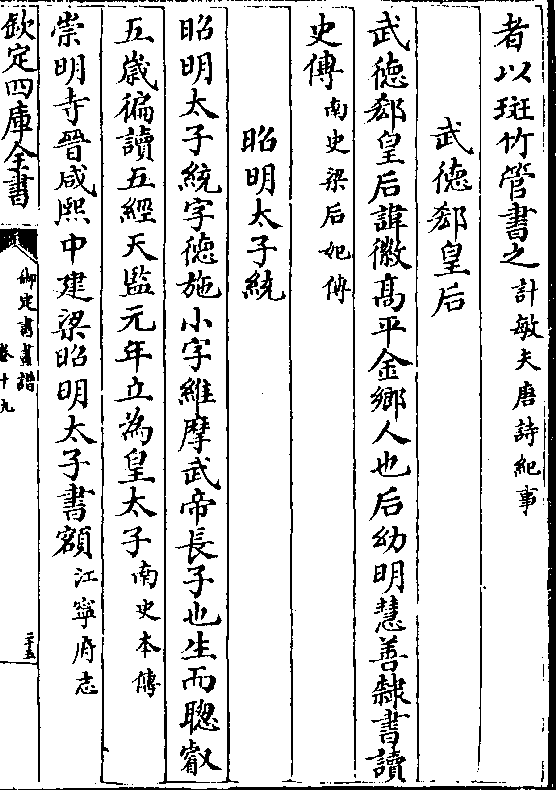 者以斑竹管書之計敏夫唐詩紀事
武德郗皇后
武德郗皇后諱徽高平金鄉人也后幼明慧善隸書讀
史傳南史梁后妃傳
昭明太子統
昭明太子統字德施小字維摩武帝長子也生而聰叡
五歲徧讀五經天監元年立為皇太子南史本傳
崇明寺晉咸熙中建梁昭明太子書額江寧府志
欽定四庫全書
御定書畫譜
卷十九
二十五